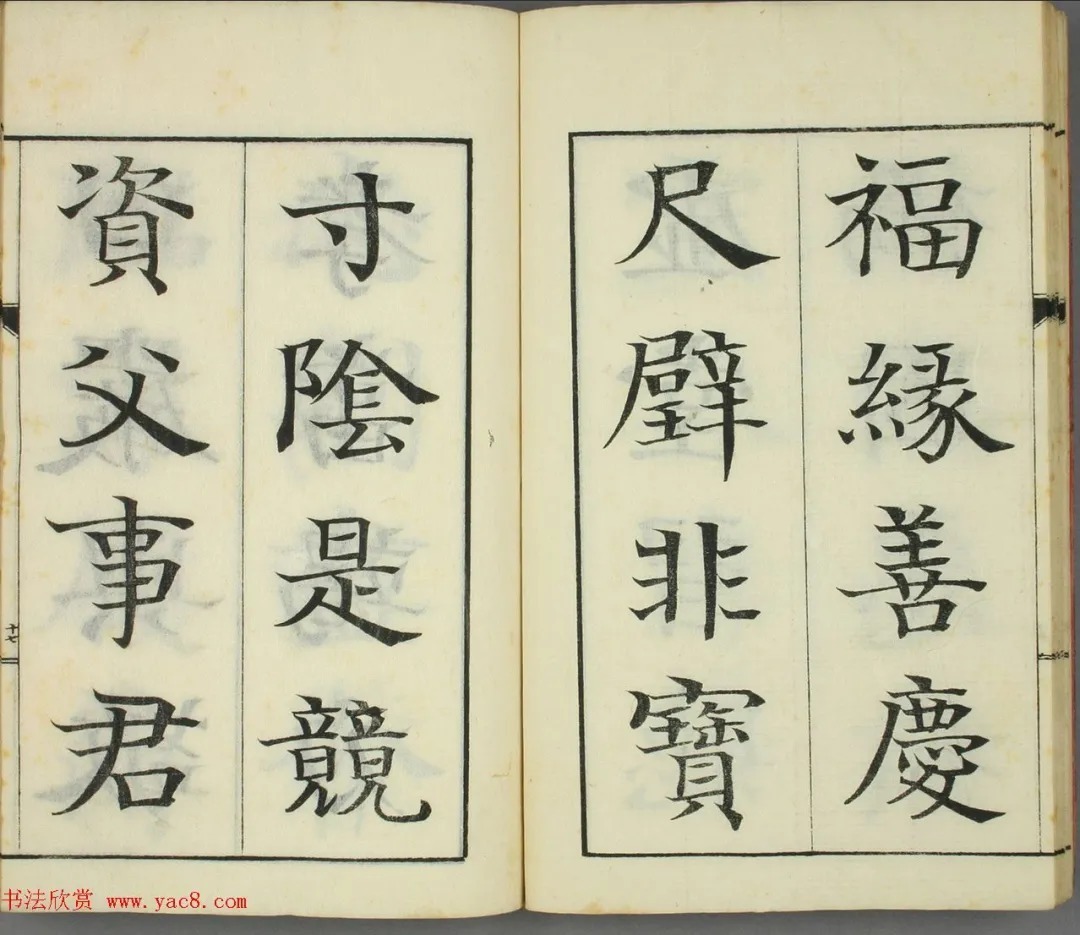 福緣善慶
尺璧非寶
寸陰是競
資父事君
十七
书法欣赏 www.yac8.com